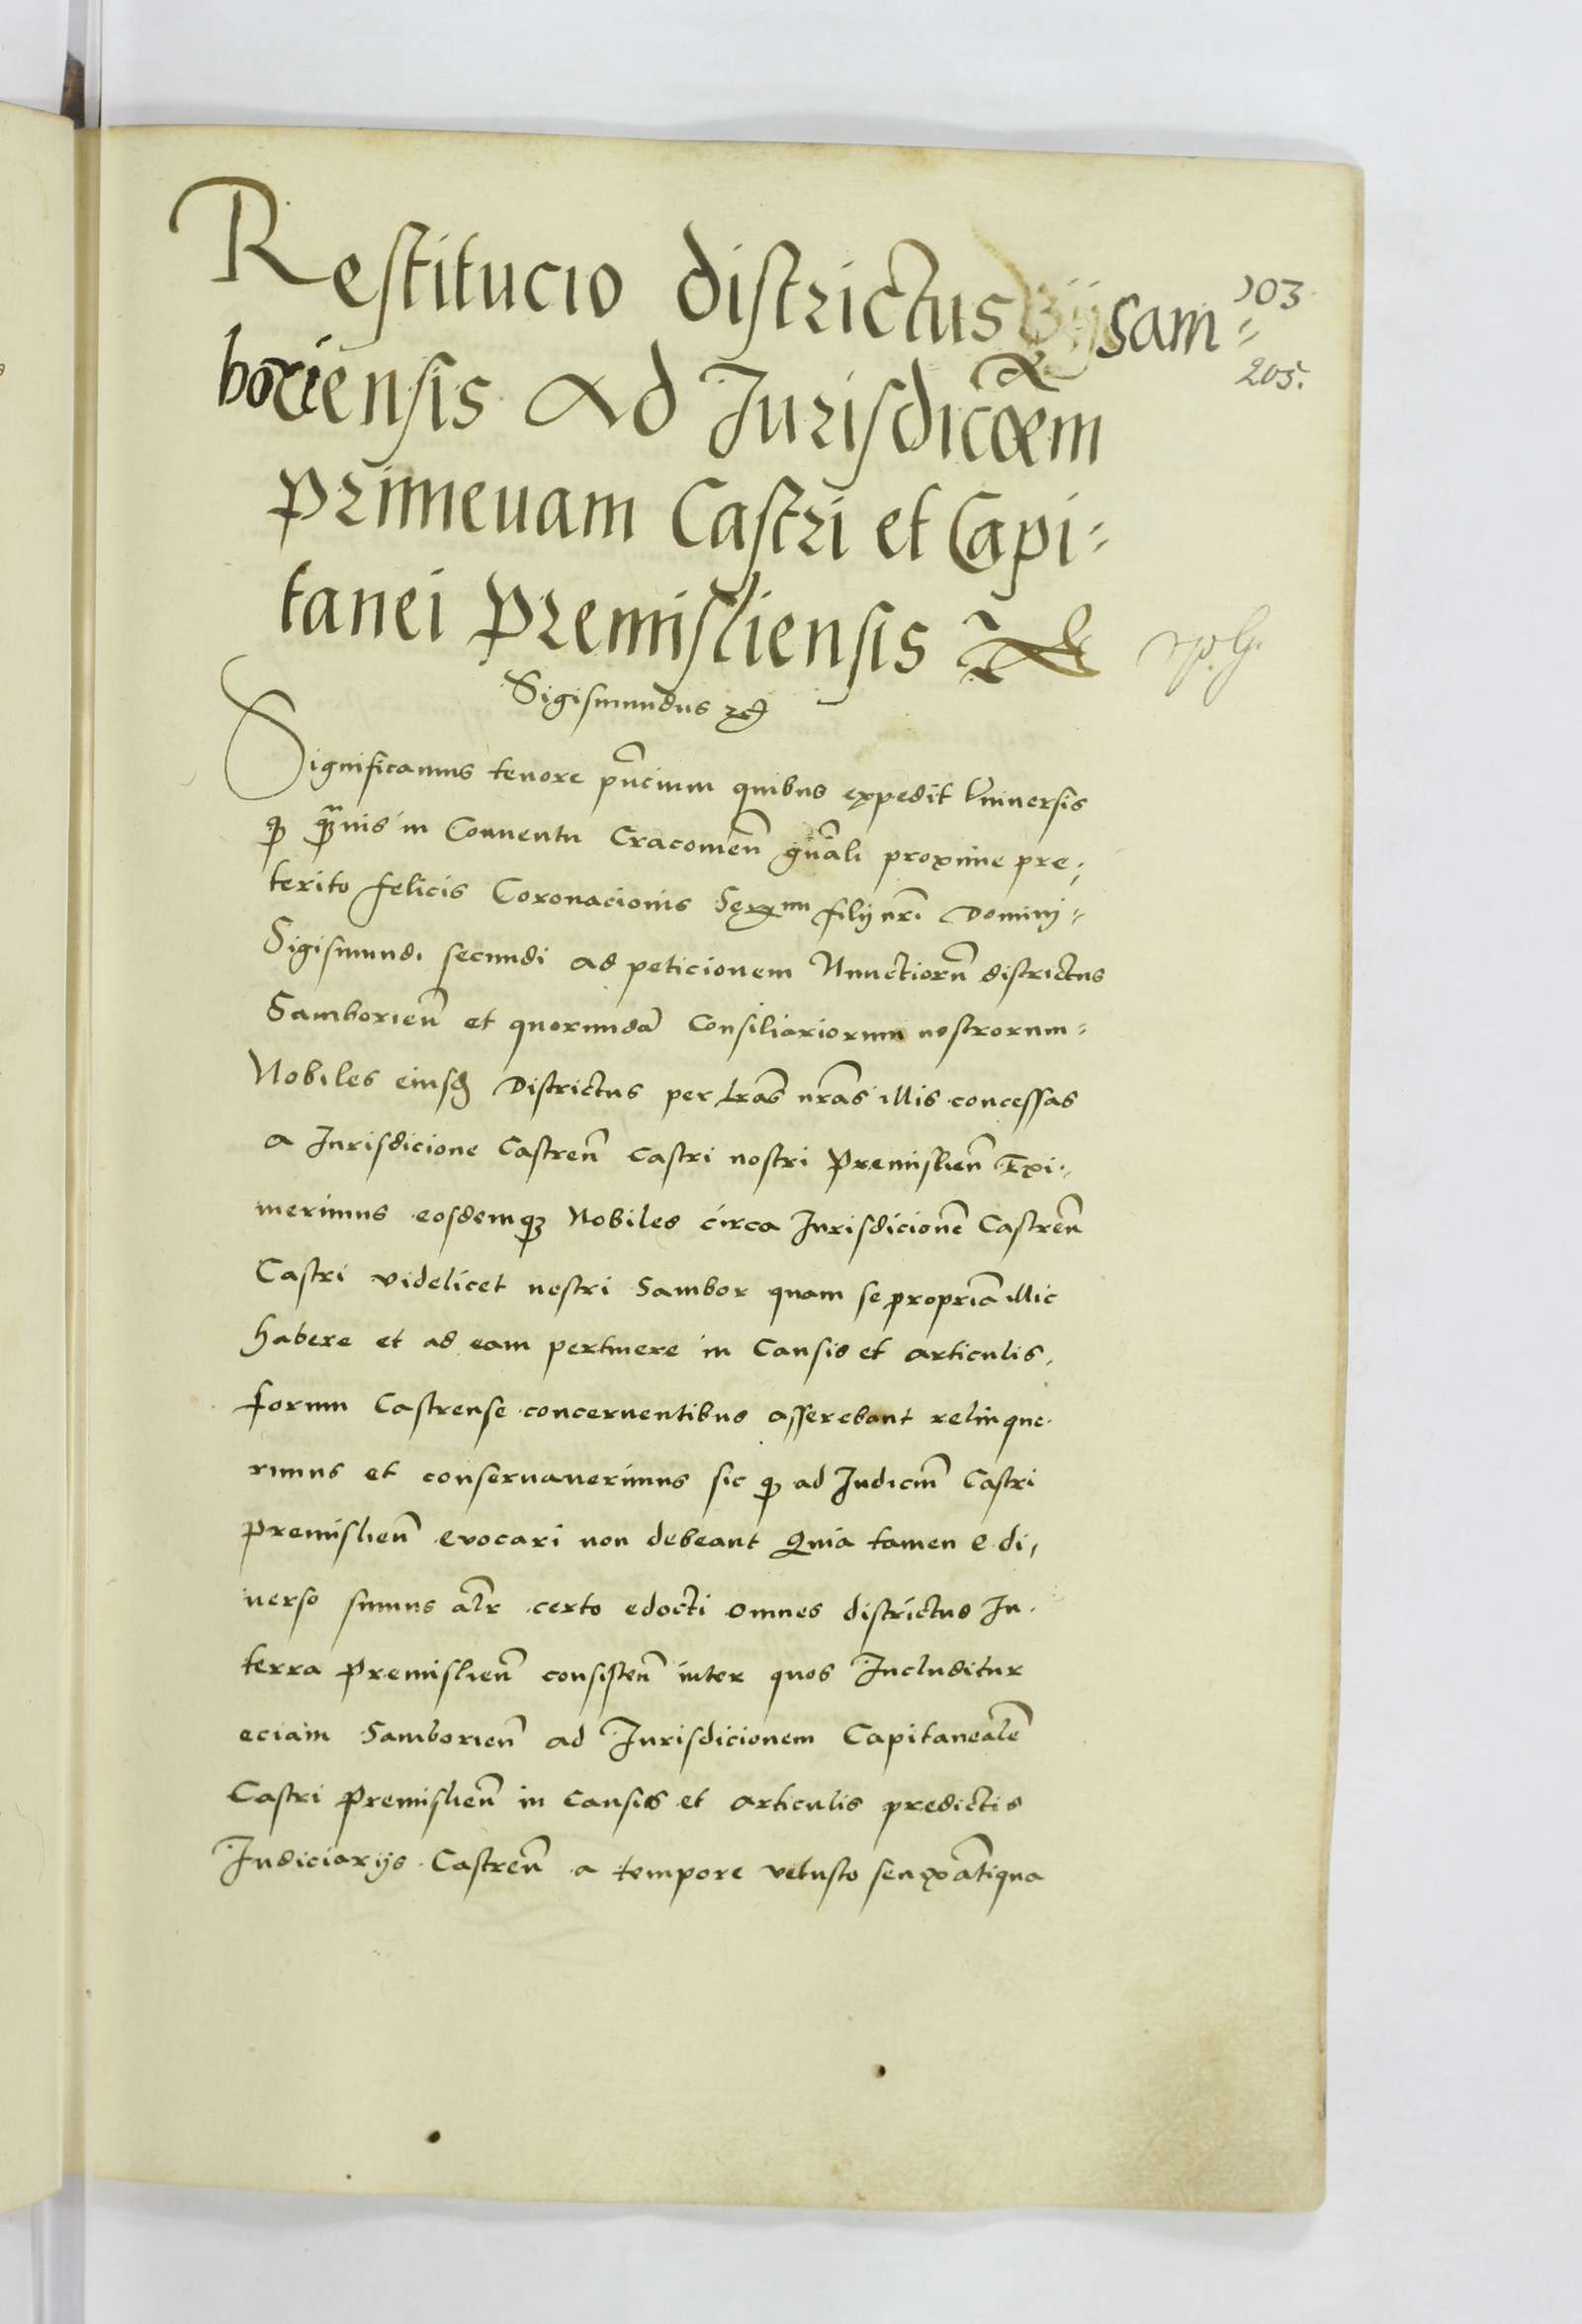 Restitucio districtus Sam=
boriensis Ad Jurisdicōem
primeuam Castri et Capi=
tanei Premisliensis
103
205.
Sigismundus
Significamus tenore pn̄cium quibus expedit Vniuersis
qȝ quāuis in Conuentu Cracouien̄ gn̄ali proxime pre=
terito felicis Coronacionis Ser̄mi filij nr̄i Domini=
Sigismundi secundi ad peticionem Nunctiorū districtus
Samborien̄ et quorundā Consiliariorum nostrorum=
Nobiles eiusd Districtus per lr̄as nr̄as illis concessas
a Jurisdicione Castren̄ Castri nostri Premislien̄ Exi=
merimus eosdemqȝ Nobiles circa Jurisdicionē Castren̄
Castri videlicet nostri Sambor quam se propriā illic
habere et ad eam pertinere in Causis et articulis
forum Castrense concernentibus asserebant relinque
rimus et conseruauerimus sic qȝ ad Judiciū Castri
Premislien̄ evocari non debeant Quia tamen e di=
uerso sumus alr̄ certo edocti omnes districtus In
terra Premislien̄ consisten̄ inter quos Includitur
eciam Samborien̄ ad Jurisdicionem Capitanealē
Castri Premislien̄ in Causis et articulis predictis
Judiciarijs Castren̄ a tempore vetusto seu ex ātiqua